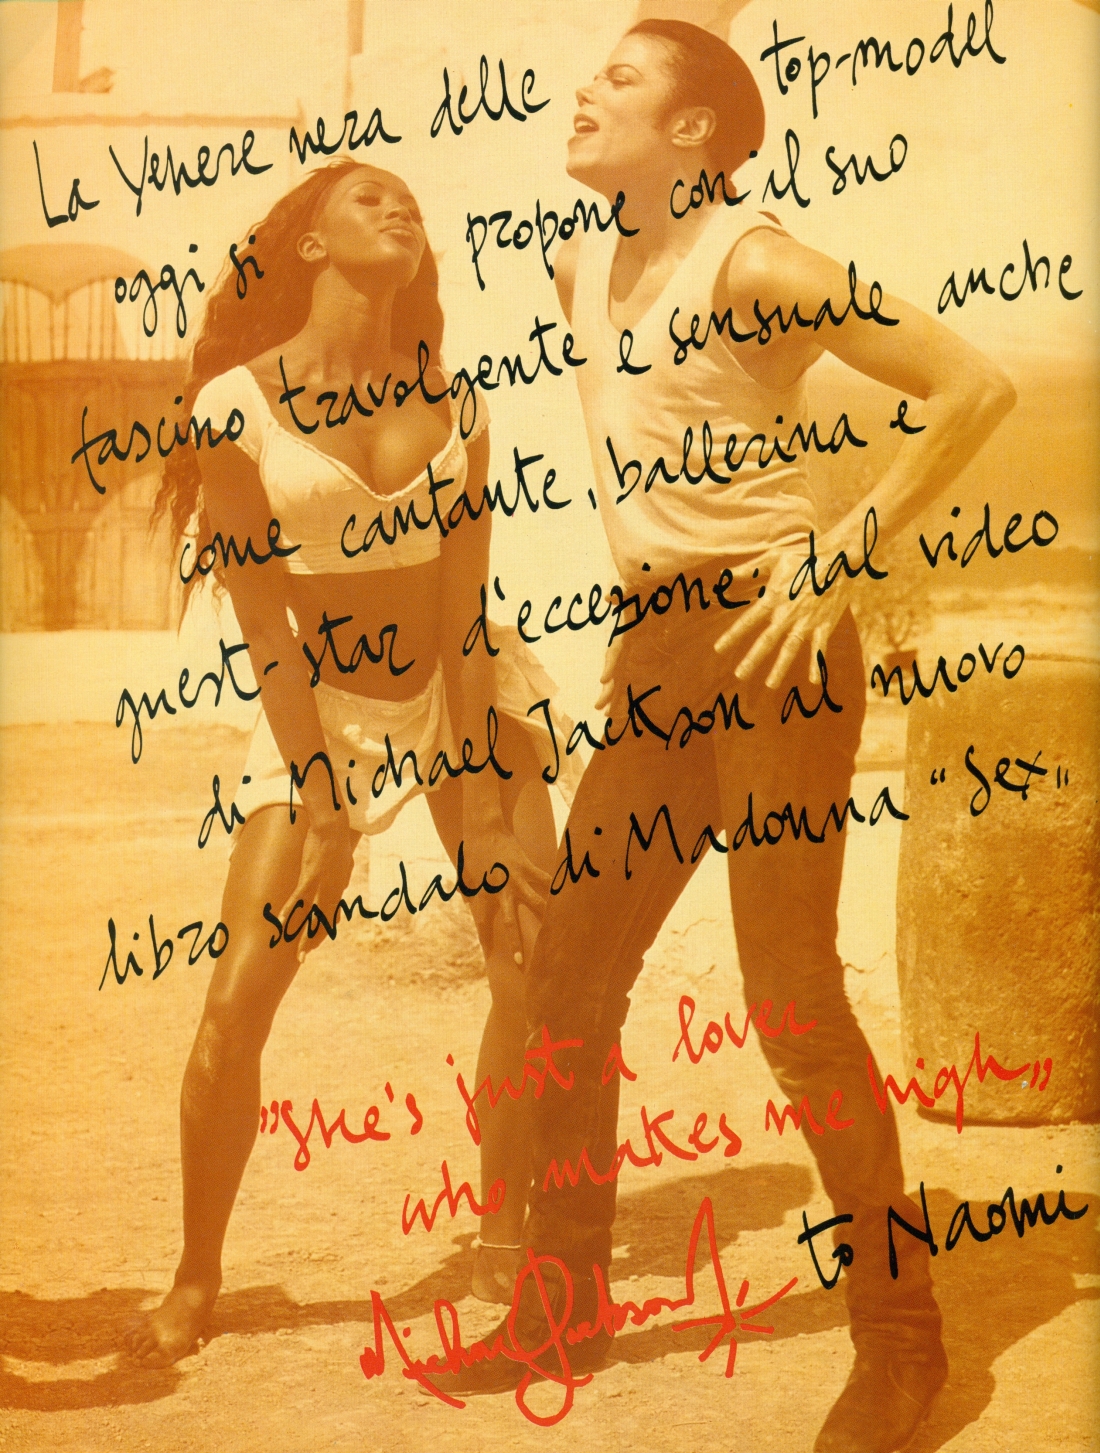 La Venere nera delle top-model
oggi si propone con il suo
fascino travolgente e sensuale anche
come cantante, ballerina e
guest-star d'eccezione: dal video
di Michael Jackson al nuovo
libro scandalo di Madonna “Sex„
„She's just a lover
who makes me high„
Michael Jackson to Naomi